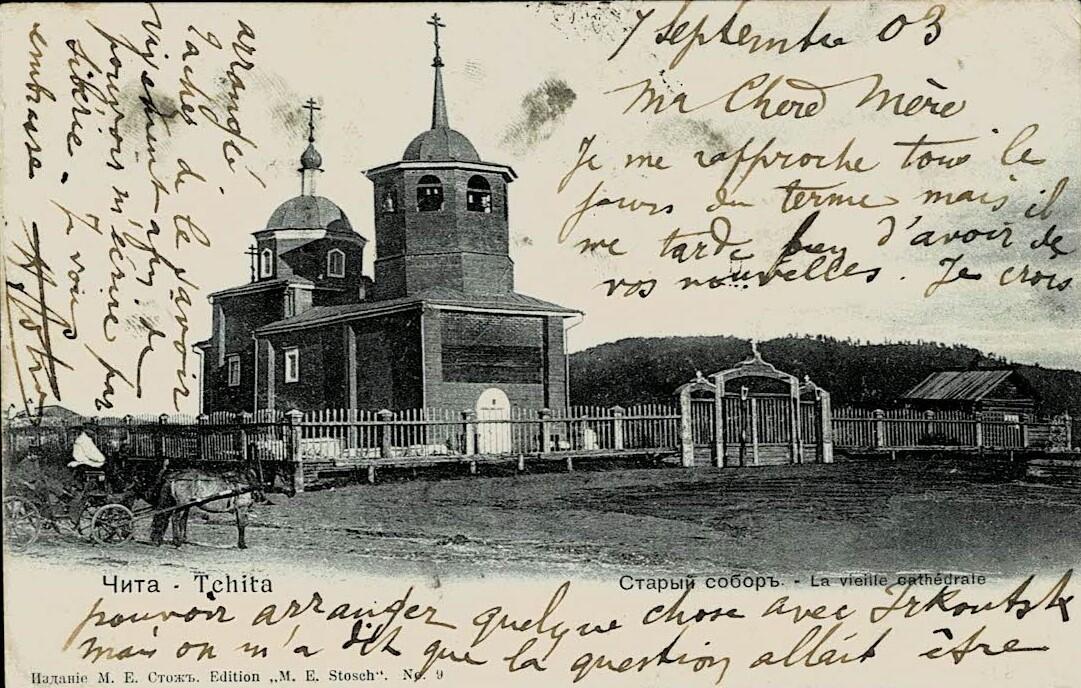 7 Septembre 03
Ma Chère Mère
Je me rapproche tous les
jours du terme mais il
me tarde bien d'avoir de
vos nouvelles. Je crois
Чита - Tchita
Старый соборъ. - La vieille cathédrale
pouvoir arranger quelque chose avec Irkoutsk
mais on m'a dit que la question allait être
Изданіе М. Е. Стожъ. Edition „M. E. Stosch“. No. 9
arrangé.
Tachez de le savoir
vivement afin de
pouvoir m'écrire par
Sibérie. Je vous
embrasse